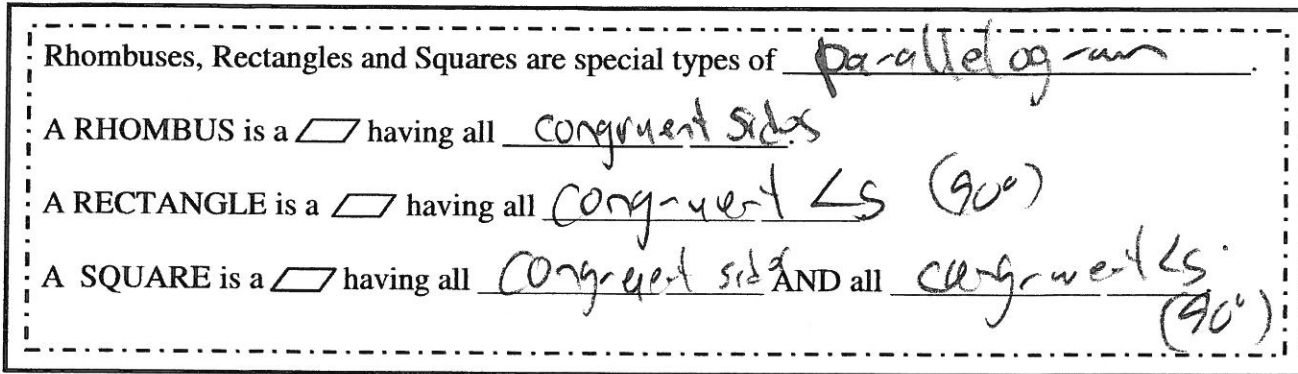 Rhombuses, Rectangles and Squares are special types of parallelogram.
A RHOMBUS is a ▱ having all congruent sides
A RECTANGLE is a ▱ having all congruent ∠s (90°)
A SQUARE is a ▱ having all congruent sides AND all congruent ∠s.
(90°)